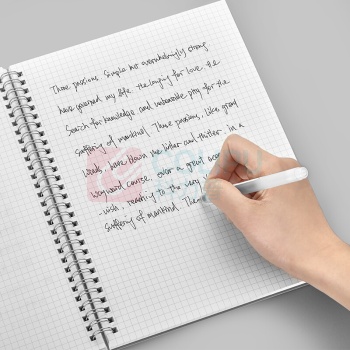 Three passions. Simple but overwhelmingly strong
have governed my life. the longing for love. the
Search for knowledge. and unbearable pity for the
Suffering of mankind. These passions, like great
winds, have blown me hither and thither. in a
Wayward course, over a great
-uish, reaching to the very
Suffering of mankind. The